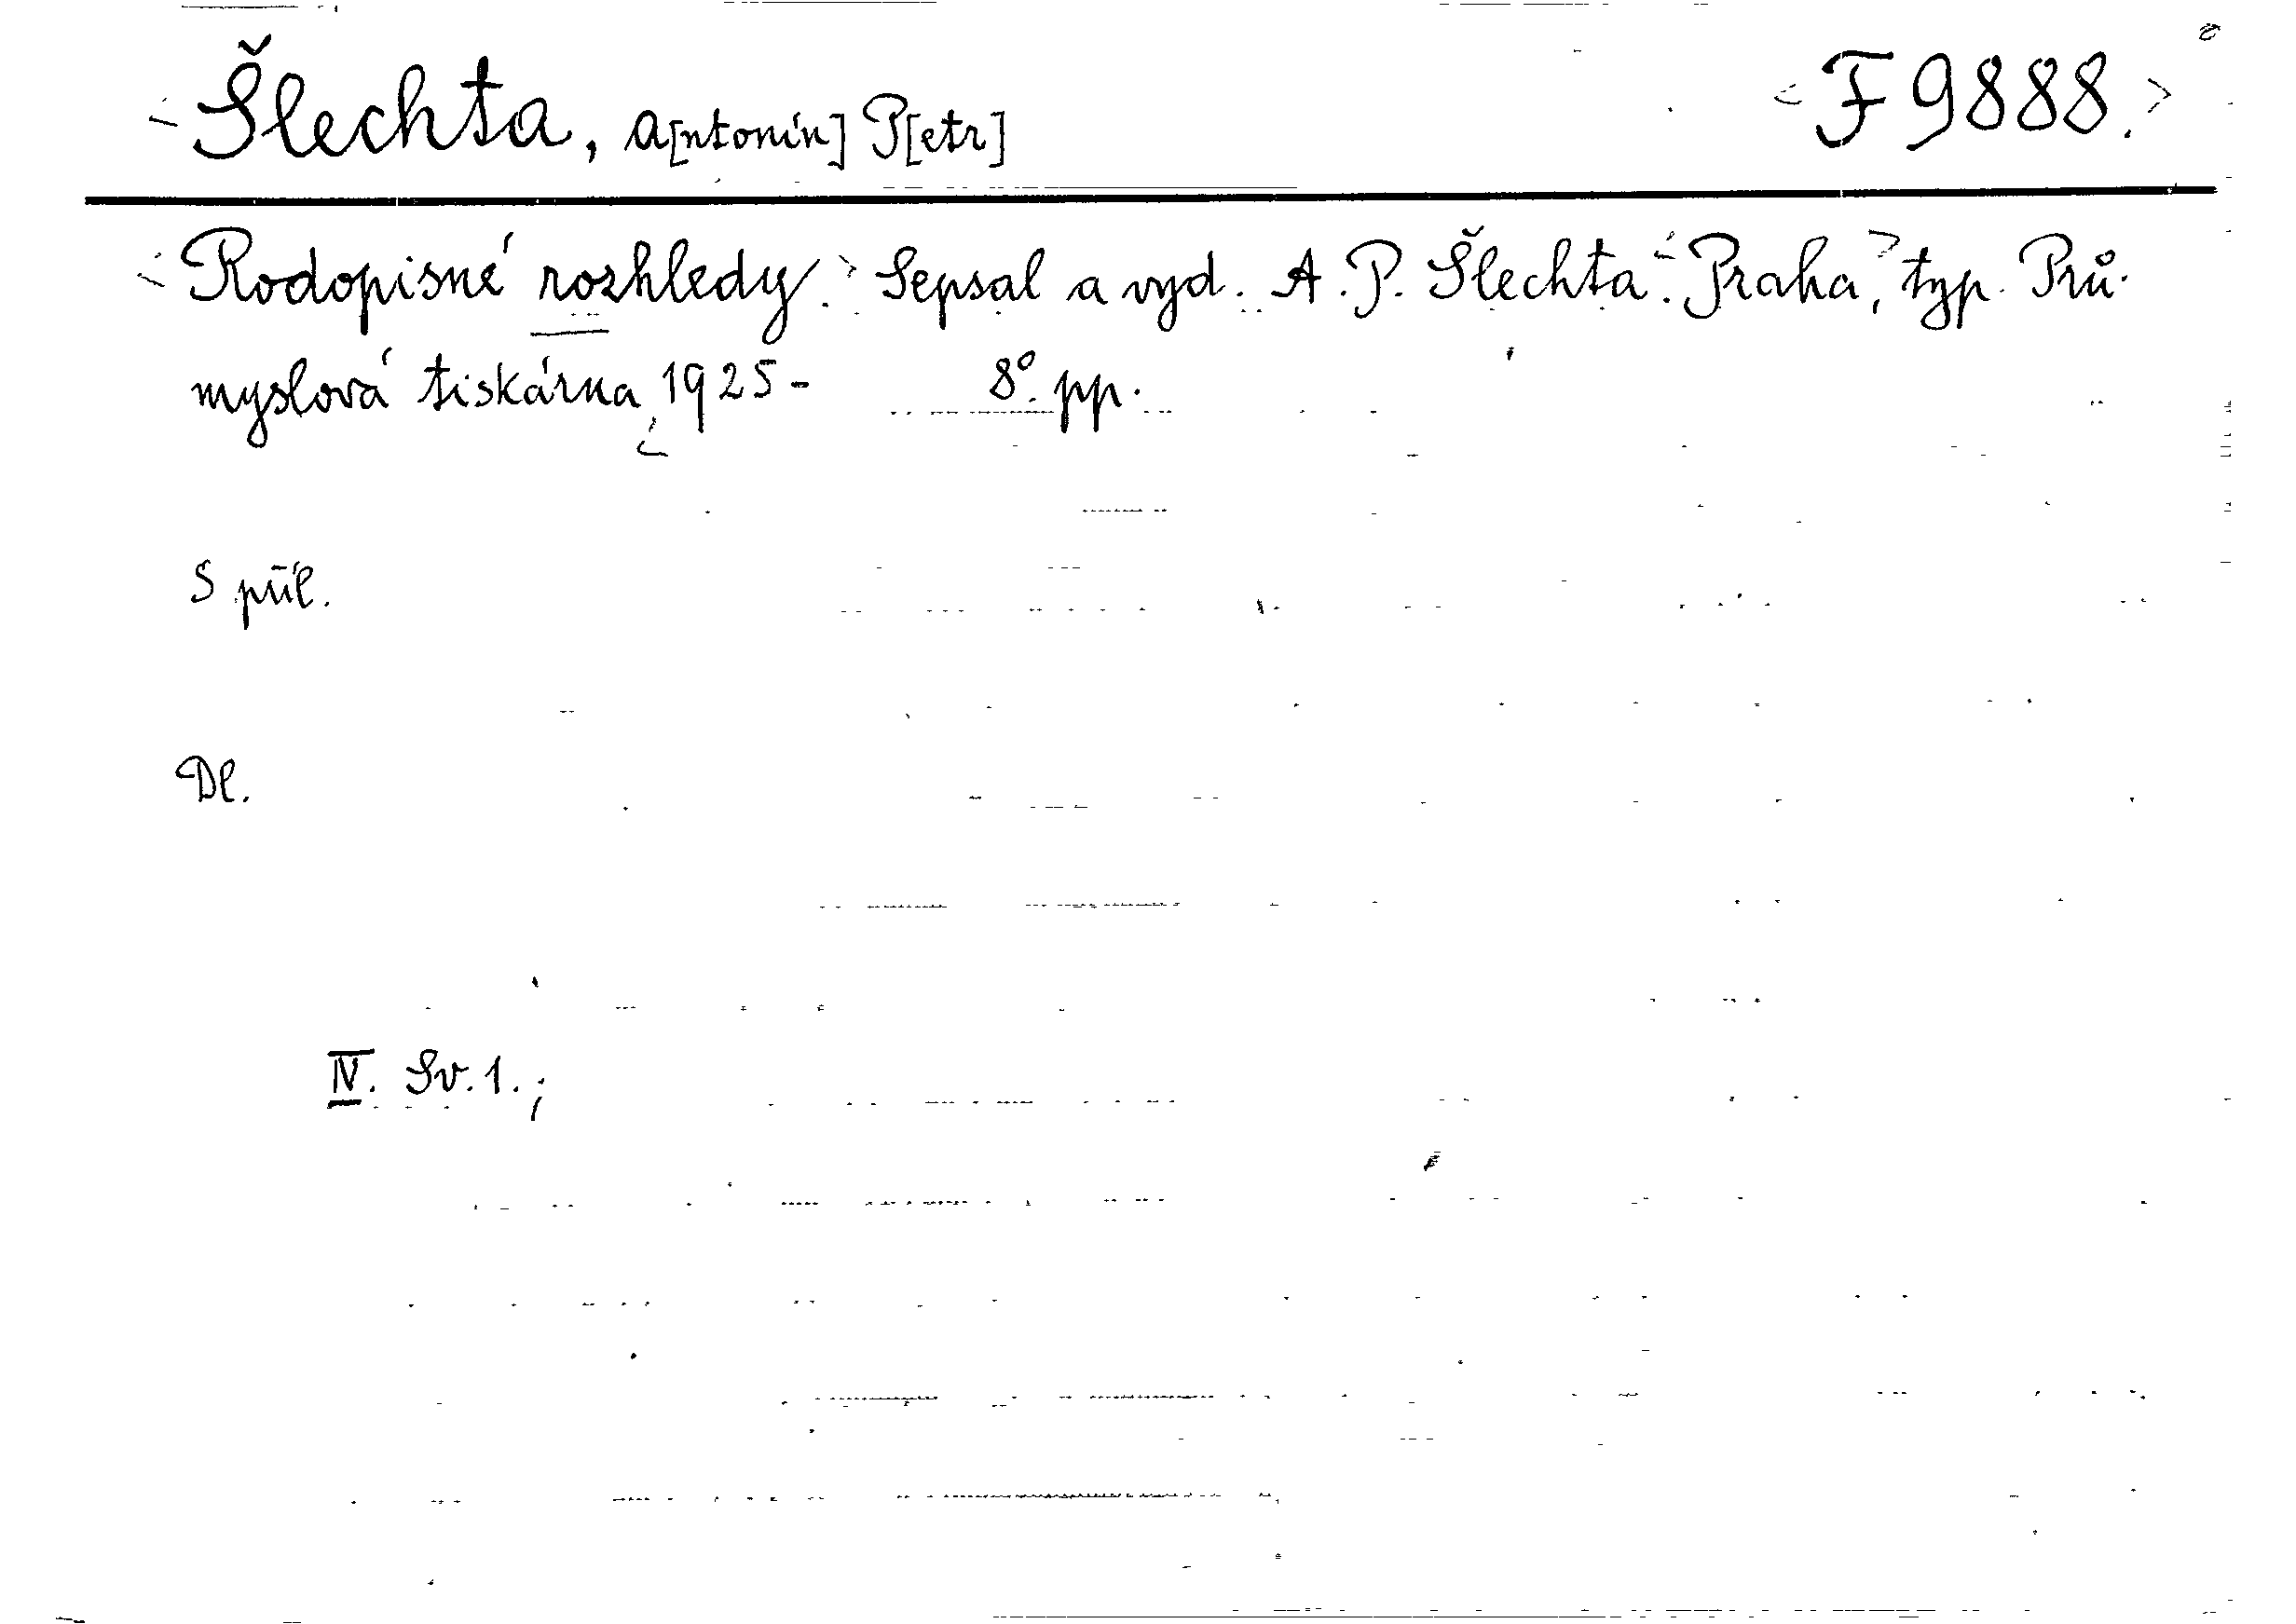 Šlechta, A[ntonín] P[etr] F 9888.
Rodopisné rozhledy. Sepsal a vyd. A. P. Šlechta. Praha, typ. Prů-
myslová tiskárna, 1925- 8°. pp.
S příl.
Dl.
IV. Sv. 1.;